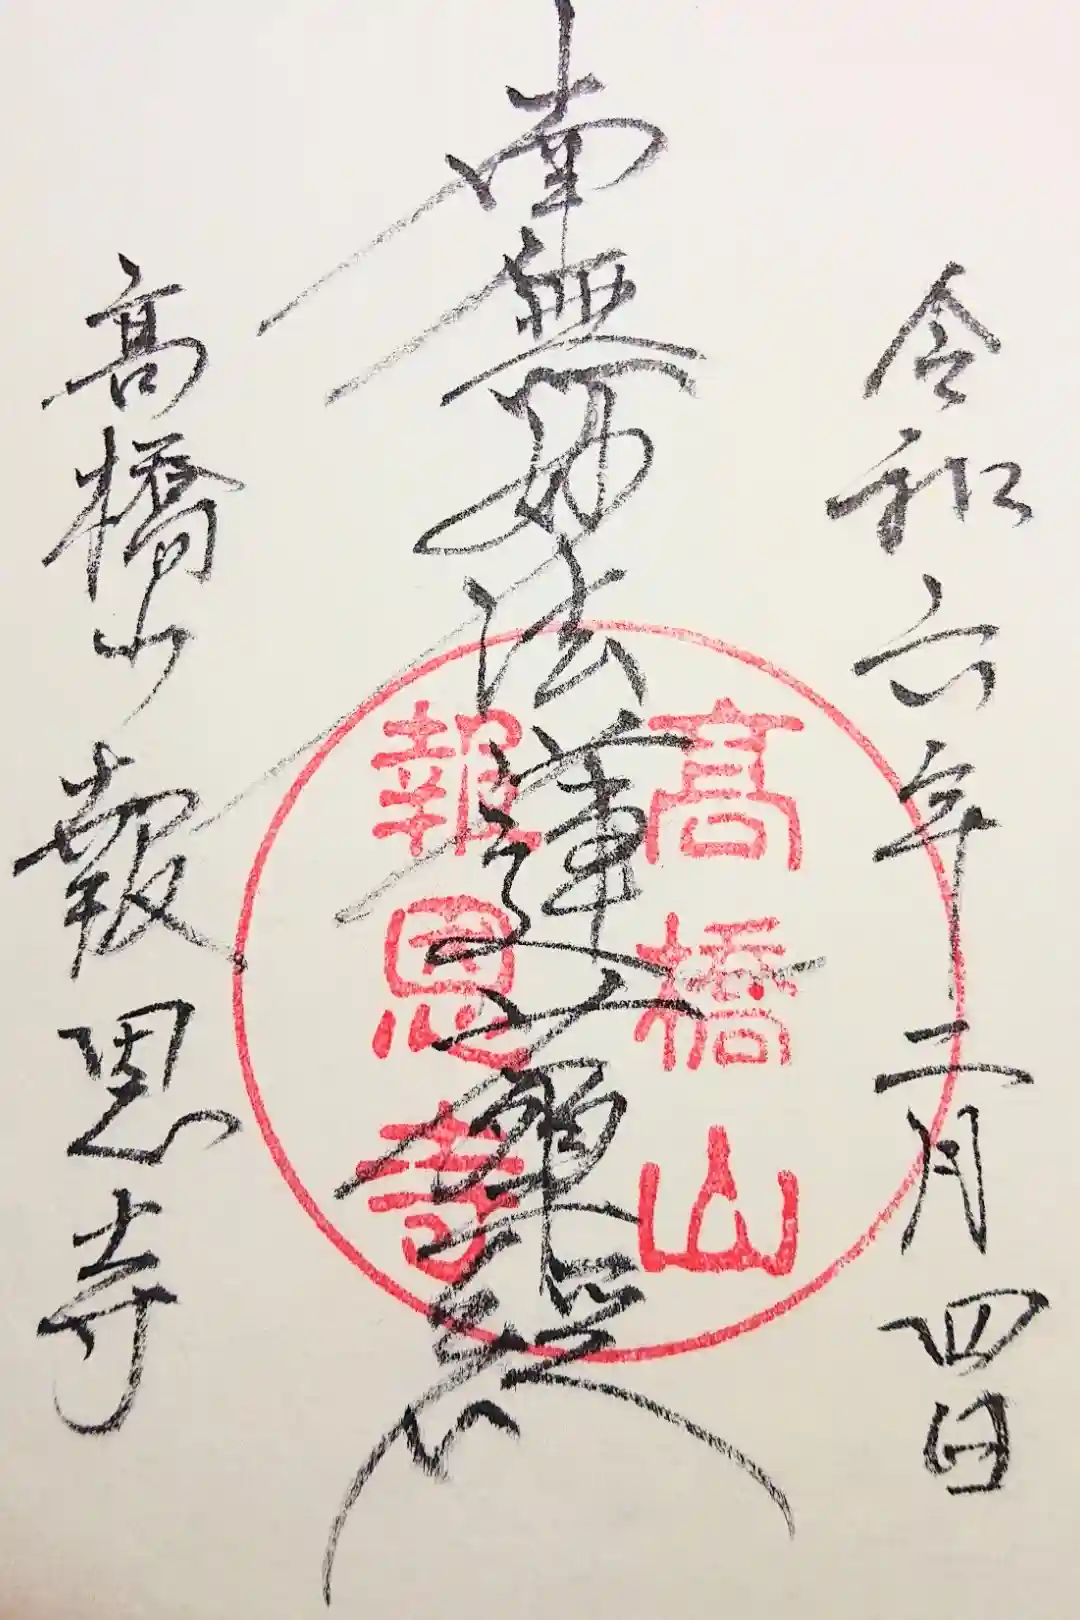 令和六年二月四日
南無妙法蓮華経
髙橋山
報恩寺
髙橋山 報恩寺